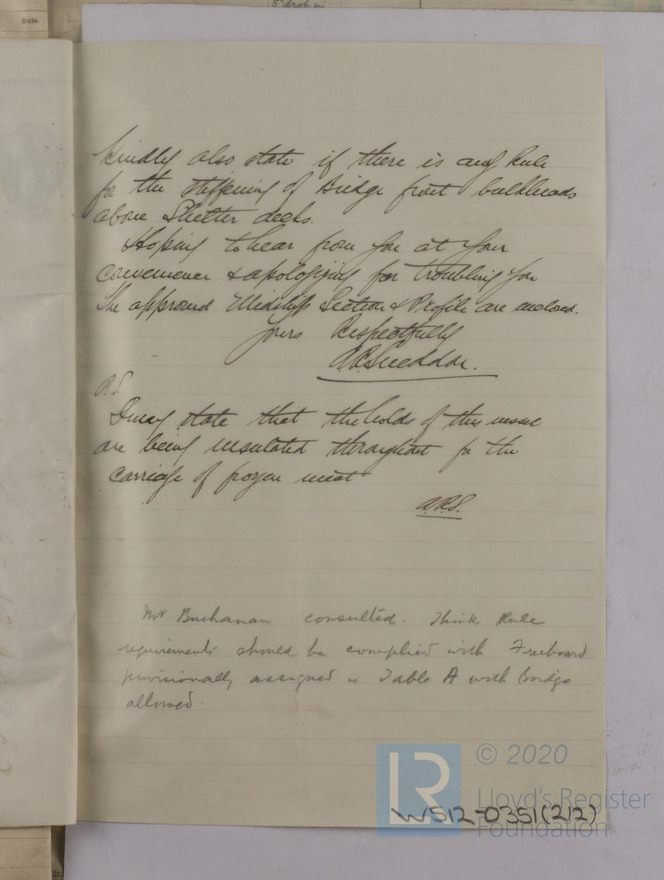 Rule.
Kindly also state if there is any Rule
for the stiffening of Bridge front bulkheads
above Shelter decks.
Hoping to hear from you at your
convenience & apologizing for troubling you
the approved Midship Section & Profile are enclosed.
Yours Respectfully
A.R. Sneddon.
P.S.
I may state that the holds of this vessel
are being insulated throughout for the
carriage of frozen meat
A.R.S.
Mr Buchanan consulted. Thinks Rule
requirements should be complied with Freeboard
provisionally assigned is Table A with bridge
allowed.
LR
© 2020
Lloyd's Register
Foundation
W512-0351(2/2)